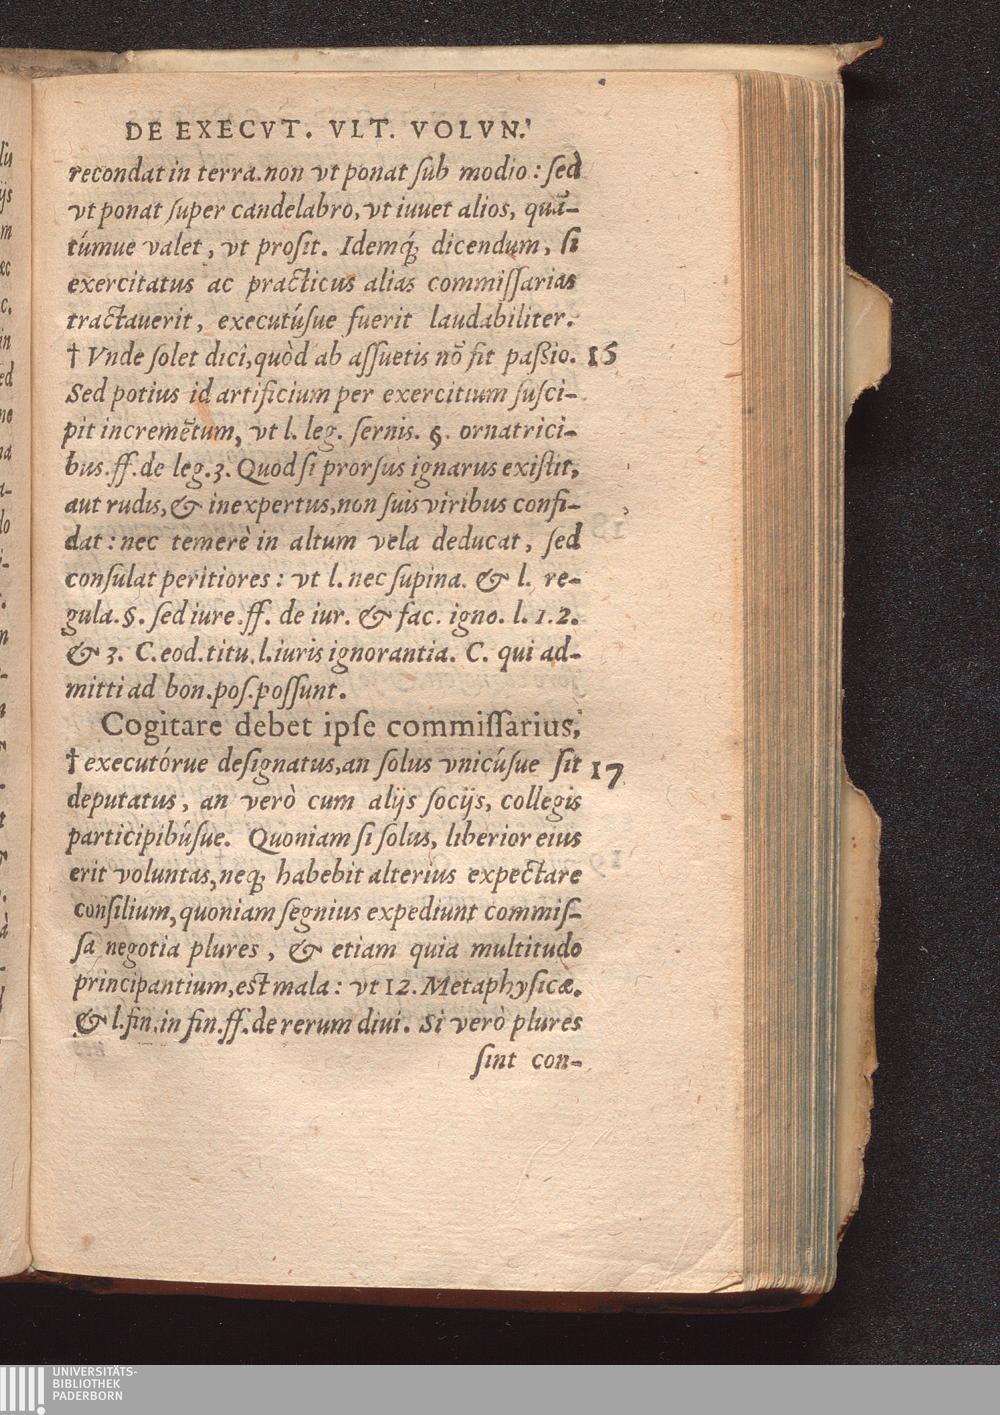 DE EXECVT. VLT. VOLVN.
recondat in terra. non vt ponat sub modio : sed
vt ponat super candelabro, vt iuuet alios, quã-
túmue valet, vt prosit. Idemq́; dicendum, si
exercitatus ac practicus alias commissarias
tractauerit, executúsue fuerit laudabiliter.
† Vnde solet dici, quòd ab assuetis nõ fit passio. 16
Sed potius id artificium per exercitium susci-
pit incremẽtum, vt l. leg. sernis. §. ornatrici-
bus. ff. de leg. 3. Quod si prorsus ignarus existit,
aut rudis, & inexpertus, non suis viribus confi-
dat : nec temerè in altum vela deducat, sed
consulat peritiores : vt l. nec supina. & l. re-
gula. §. sed iure. ff. de iur. & fac. igno. l. 1. 2.
& 3. C. eod. titu. l. iuris ignorantia. C. qui ad-
mitti ad bon. pos. possunt.
Cogitare debet ipse commissarius,
† executórue designatus, an solus vnicúsue sit 17
deputatus, an verò cum alijs socijs, collegis
participibúsue. Quoniam si solus, liberior eius
erit voluntas, neq; habebit alterius expectare
consilium, quoniam segnius expediunt commis-
sa negotia plures, & etiam quia multitudo
principantium, est mala : vt 12. Metaphysicæ.
& l. fin. in fin. ff. de rerum diui. Si verò plures
sint con-
UNIVERSITÄTS-
BIBLIOTHEK
PADERBORN